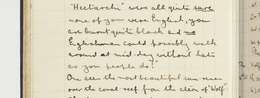 "Hectiarchi" were all quite sure
none of you were English, you
are burnt quite black and no
Englishman could possibly walk
around at mid day without hats
as you people do".
One sees the most beautiful sun rises
over the coral reef from the